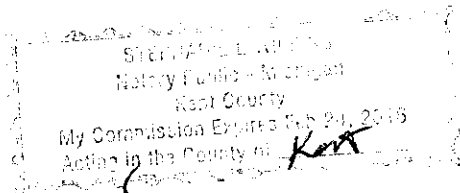 Notary Public - Michigan
Kent County
My Commission Expires Feb 24, 2016
Acting in the County of Kent